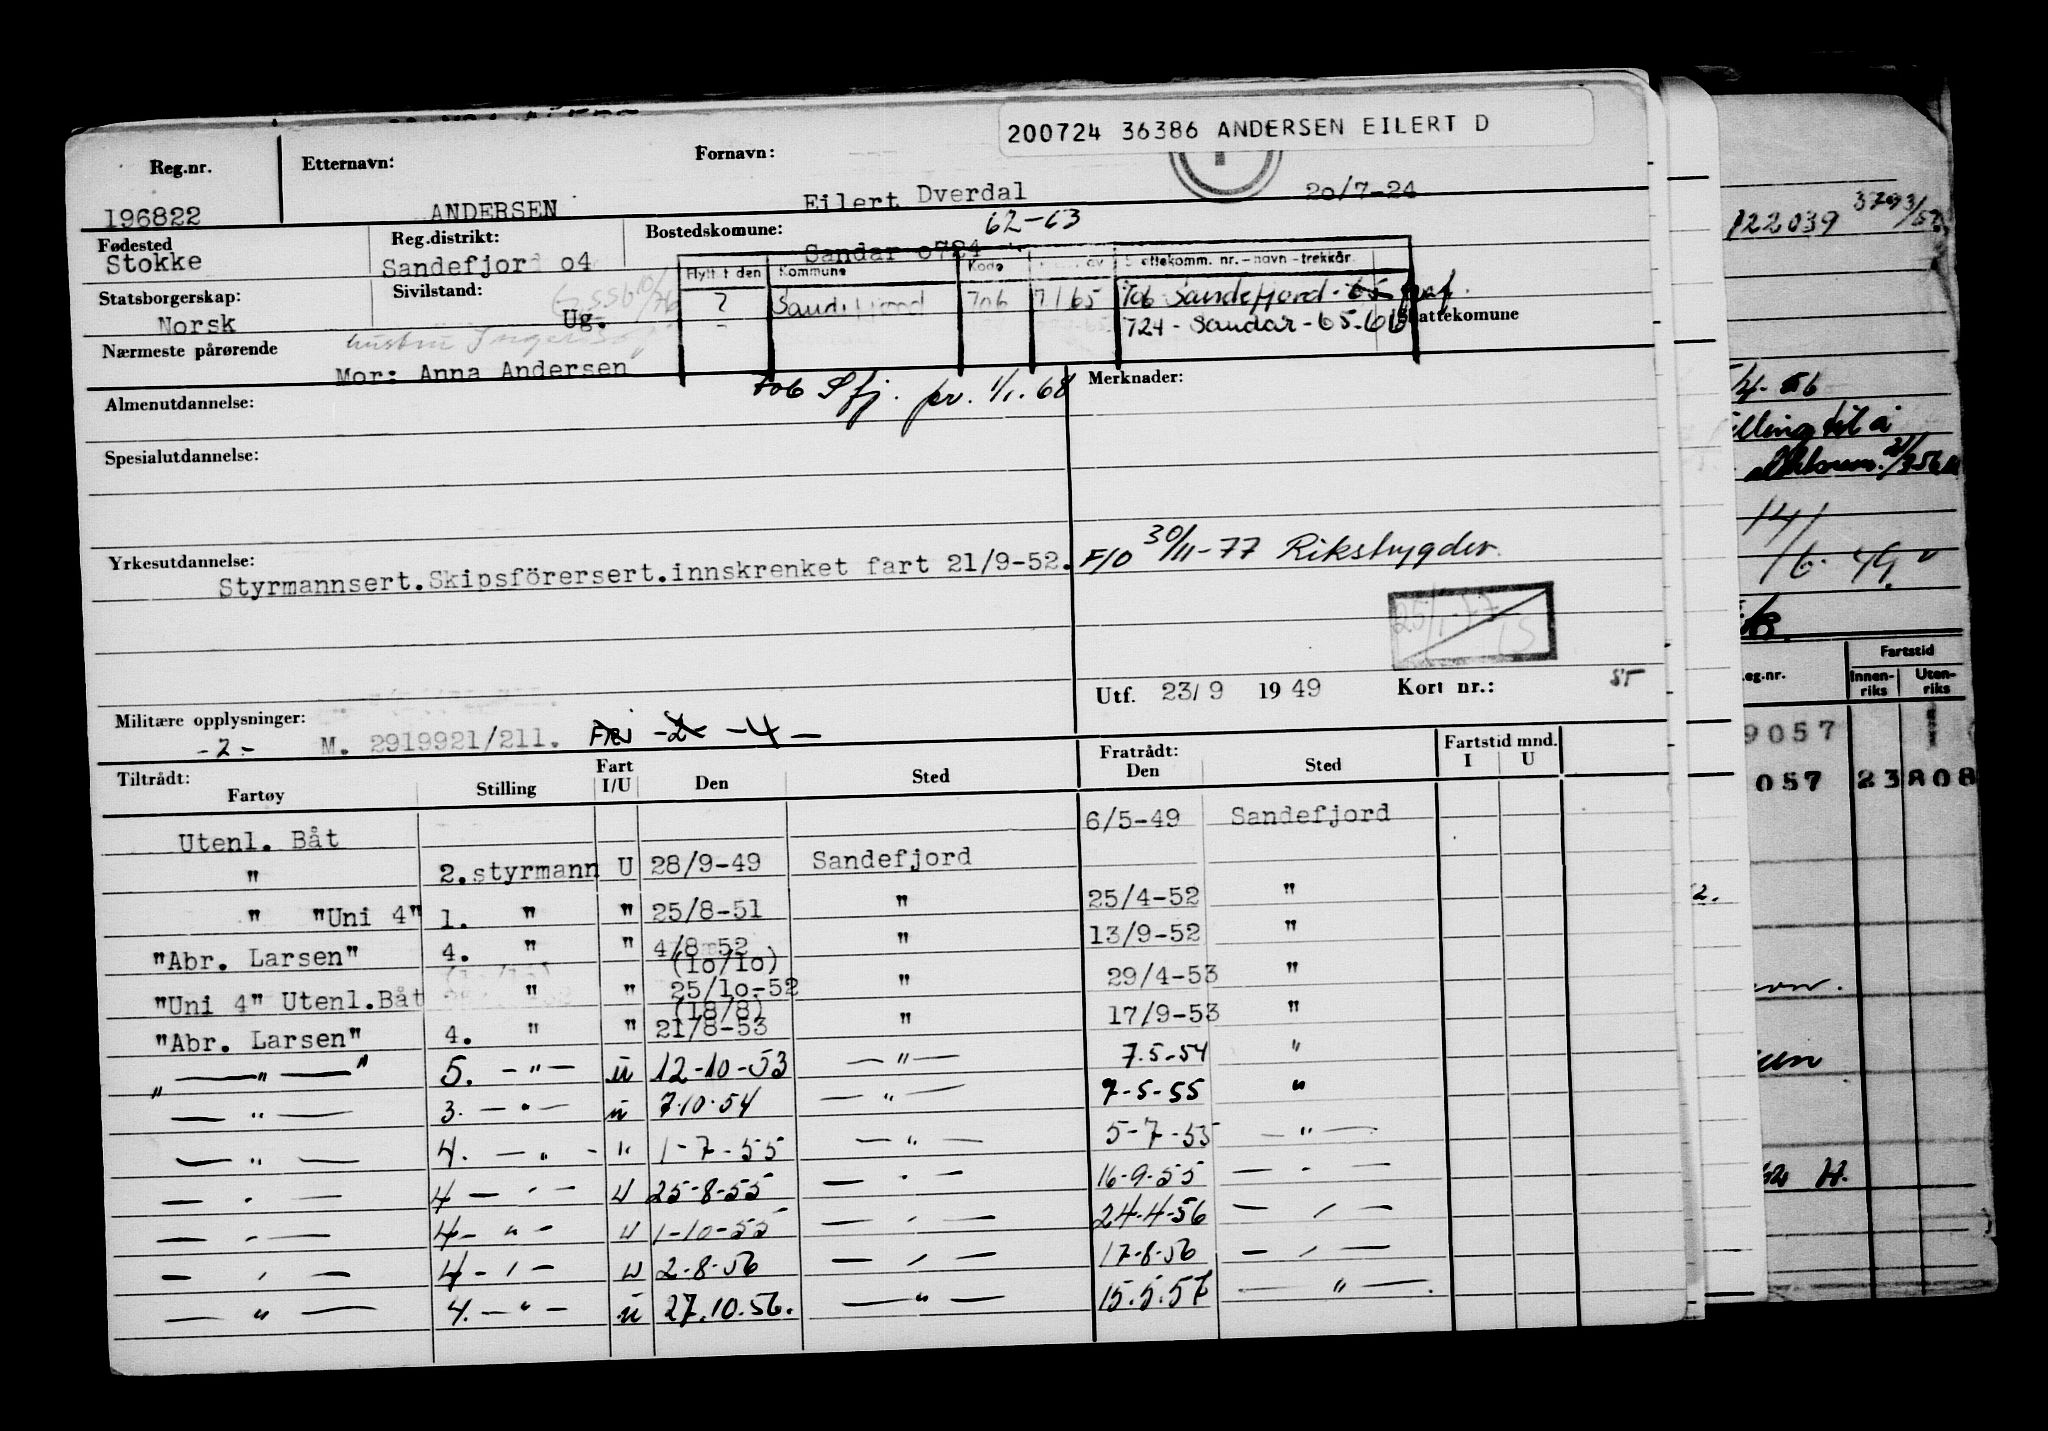 200724 36386 ANDERSEN EILERT D
Reg.nr. Etternavn: Fornavn:
196822 ANDERSEN Eilert Dverdal 20/7-24
Fødested Reg.distrikt: Bostedskomune: 62-63
Stokke Sandefjord o4 Sandar o724
Flytt. t den Kommune Kode Skattekomm. nr. - navn - trekkår.
Statsborgerskap: Sivilstand:
Norsk Ug. 2 Sandefjord 706 7/1 65 706 Sandefjord - 65
724 - Sandar - 65-66
Skattekomune
Nærmeste pårørende
Mor: Anna Andersen
706 Sfj. pr. 1/1. 68
Almenutdannelse: Merknader:
Spesialutdannelse:
Yrkesutdannelse:
Styrmannsert.Skipsförersert.innskrenket fart 21/9-52.
F/O 30/11-77 Rikstrygden.
25/1-77
Utf. 23/9 1949 Kort nr.:
Militære opplysninger:
-2.- M. 2919921/211. -2- -4-
Tiltrådt: Fratrådt: Fartstid mnd.
Fartøy Stilling Fart I/U Den Sted Den Sted I U
Utenl. Båt 6/5-49 Sandefjord
" 2.styrmann U 28/9-49 Sandefjord
" "Uni 4" 1. " " 25/8-51 " 25/4-52 "
"Abr. Larsen" 4. " " 4/8-52 " 13/9-52 "
(1o/1o)
"Uni 4" Utenl.Båt " " 25/1o-52 " 29/4-53 "
(18/8)
"Abr. Larsen" 4. " " 21/8-53 " 17/9-53 "
" — " — " 5. - " - u 12-10-53 — " — 7.5-54 "
— " — 3. - " - u 7.10.54 — " — 7-5-55 "
— " — 4. - " - " 1-7-55 — " — 5-7-55 — " —
— " — 4 - " - U 25-8-55 — " — 16-9-55 — " —
— " — 4 - " - U 1-10-55 — " — 24-4-56 — " —
— " — 4 - " - U 2-8-56 — " — 17-8-56 — " —
— " — 4. - " - u 27.10.56. — " — 15.5.57 — " —
122039
141
16. 49.
Fartstid
eg.nr. Innen-riks Uten-riks
9057
057 23 808
2.
H.